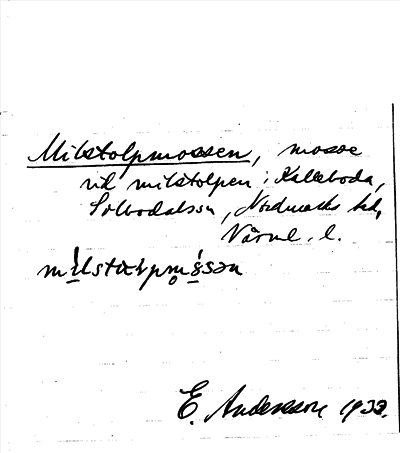 Milstolpmossen, mosse
vid milstolpen i Kalleboda,
Silbodals sn, Nordmarks hd,
Värml. l.
E. Andersson 193